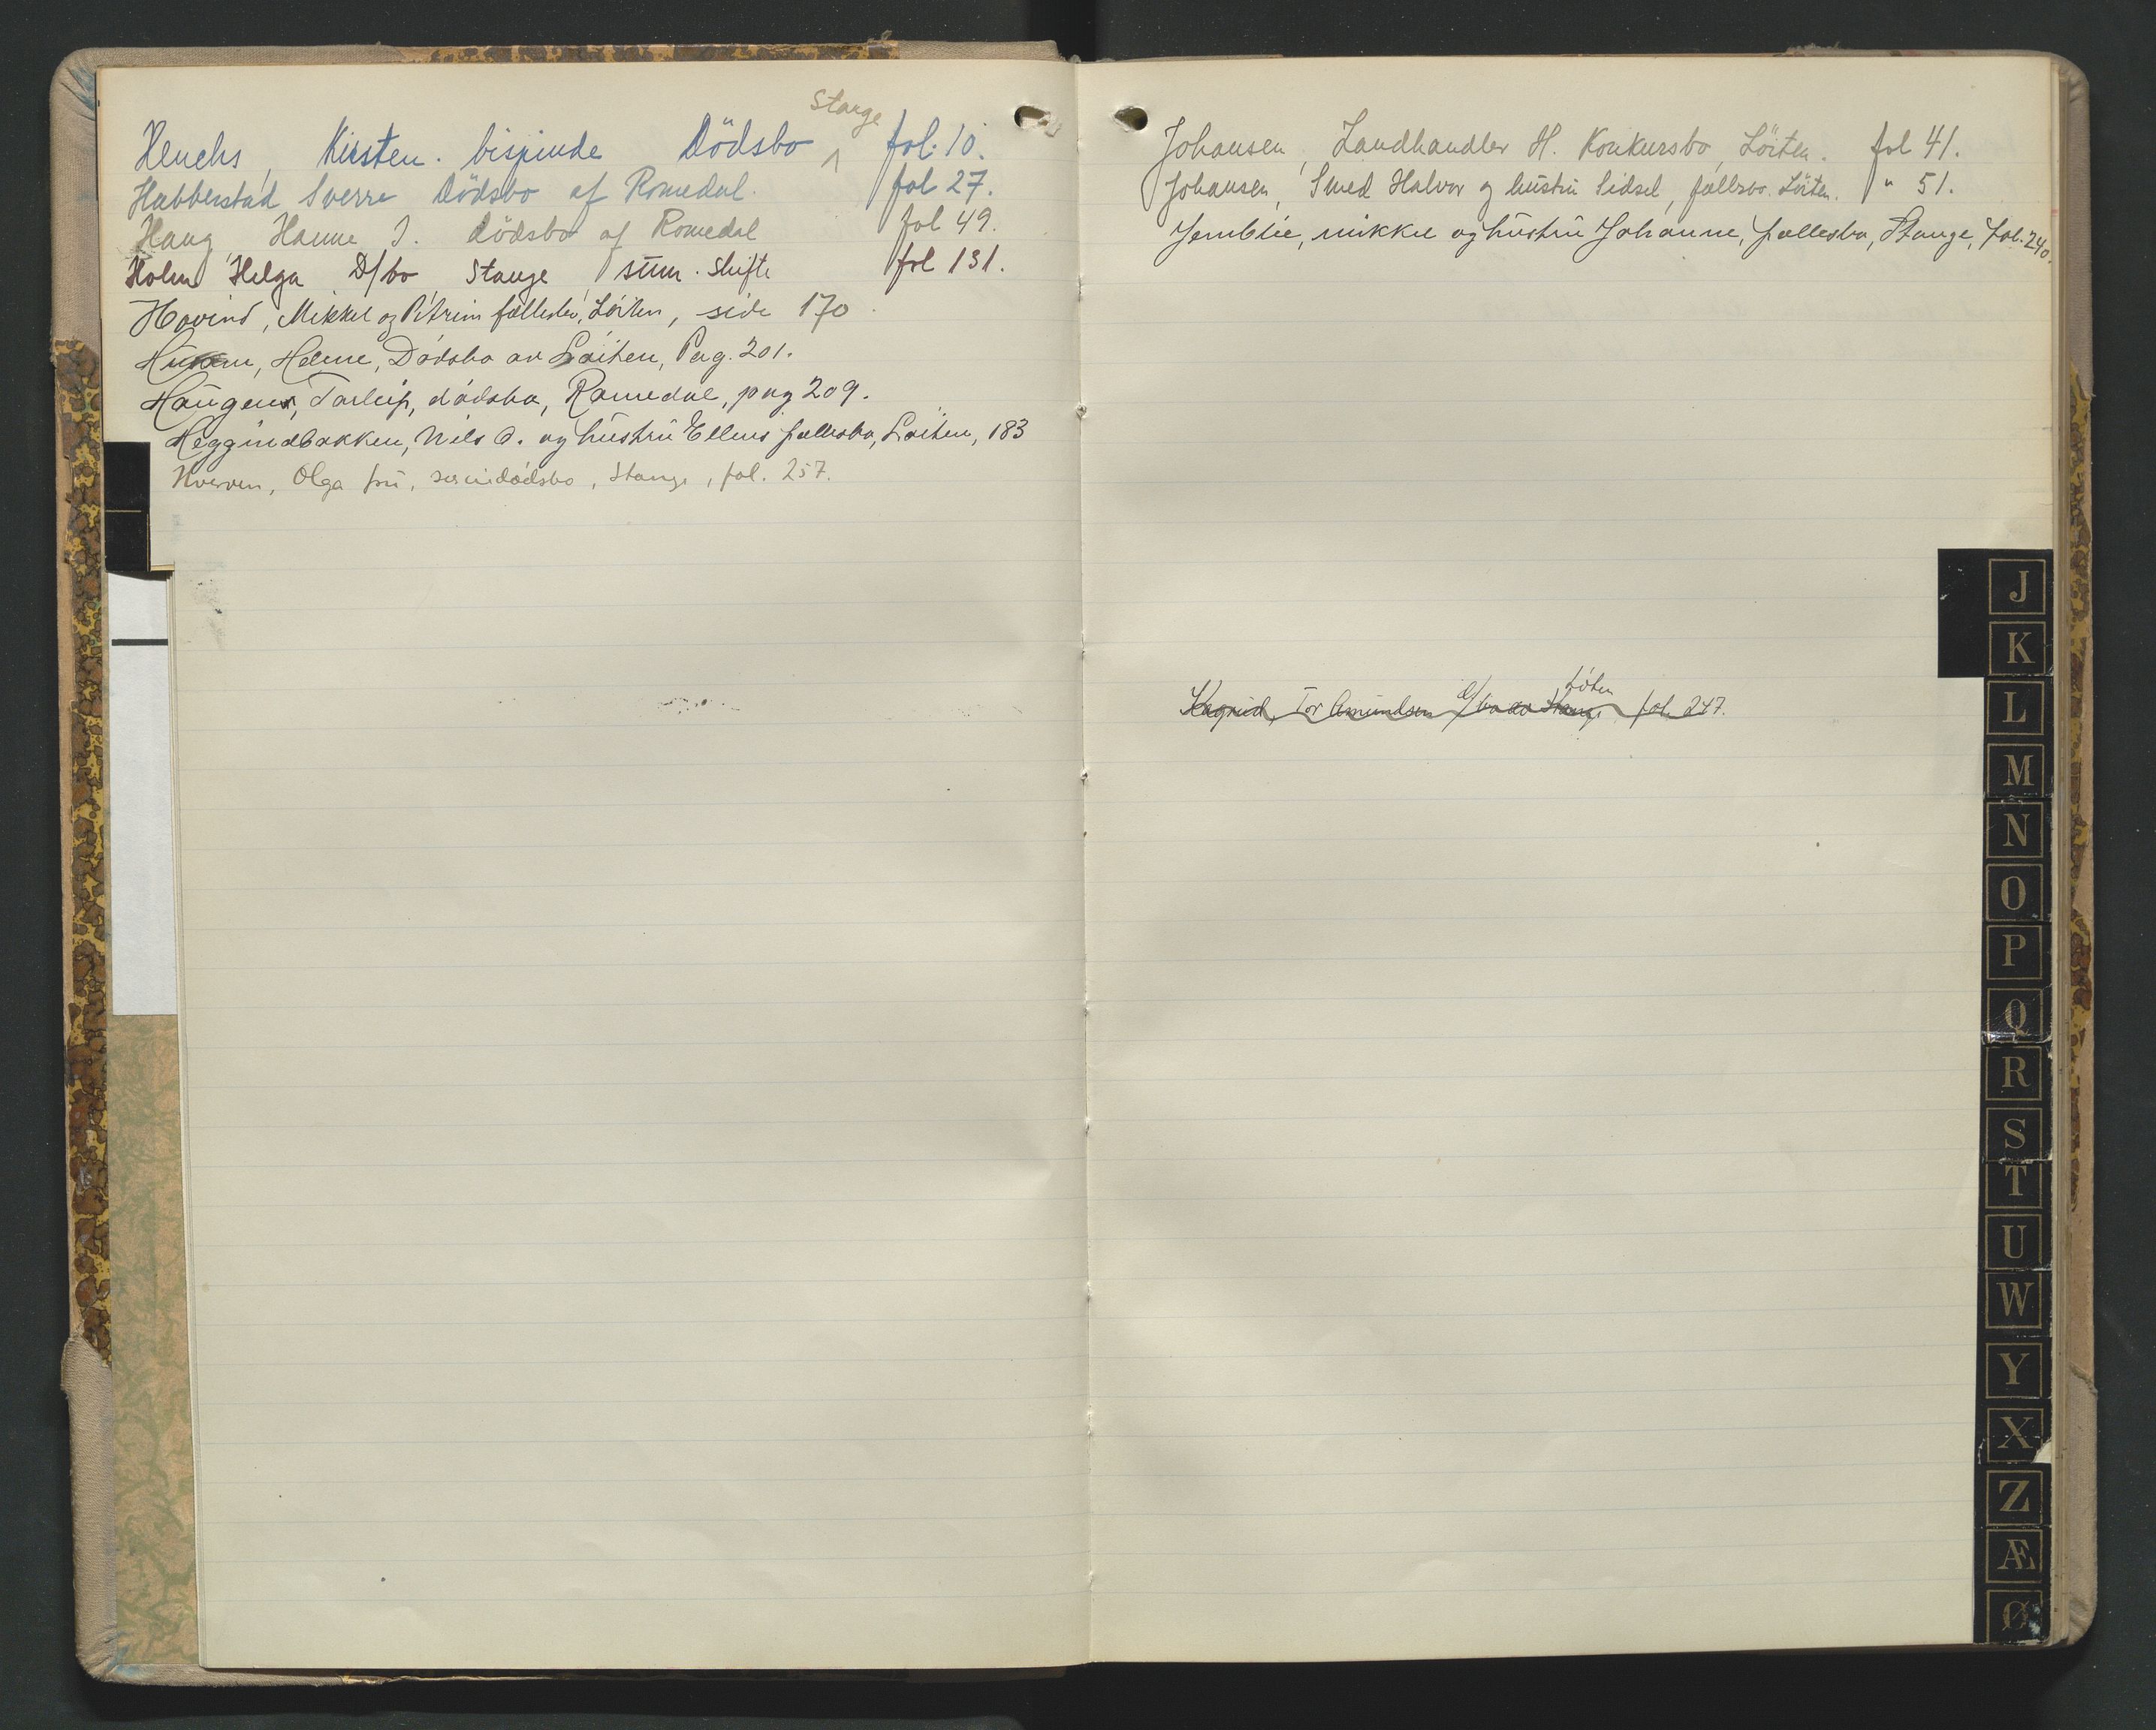 Stange
Henchs, Kirsten. bispinde Dödsbo fol. 10.
Habberstad Sverre Dödsbo af Romedal. fol 27.
Haug, Hanne J. dödsbo af Romedal fol 49.
Holm Helga D/bo, Stange, sum. skifte fol 131.
Hovind, Mikkel og Petrine fællesbo, Löiten, side 170.
Helene, Dødsbo av Løiten, Pag. 201.
Haugen, Torleif, dødsbo, Romedal, pag 209.
Heggindbakken, Nils O. og hustru Ellens fællesbo, Løiten, 183
Hverven, Olga fru, dødsbo, Stange, fol. 257.
Johansen, Landhandler H. Konkursbo, Löiten. fol 41.
Johansen, Smed Halvor og hustru Sidsel, fællesbo. Löiten. " 51.
Jemblie, Mikkel og hustru Johanne, fællesbo, Stange, fol. 240.
Løten
Kagrud, Tor Amundsen d/bo av Stange fol. 247.
J
K
L
M
N
O
P
Q
R
S
T
U
W
Y
X
Z
Æ
Ø